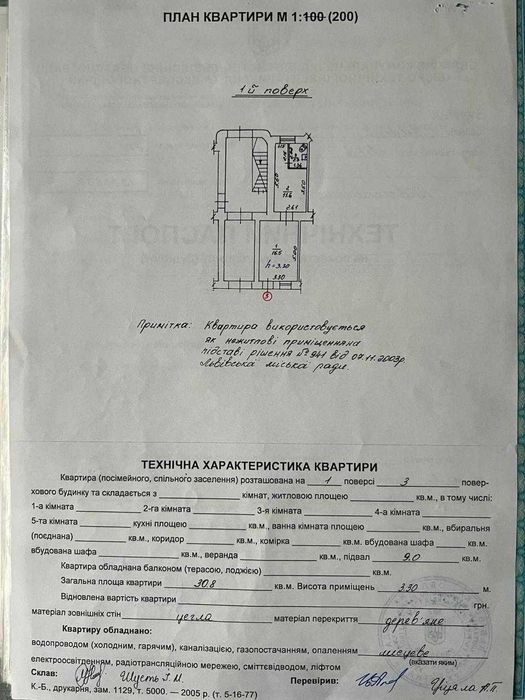 ПЛАН КВАРТИРИ М 1:100 (200)
1й поверх
2
2.61
1
16.5
5.00
h=3.30
3.30
Примітка: Квартира використовується
як нежитлові приміщення на
підставі рішення № 941 від 07.11.2003р
Львівська міська рада.
ТЕХНІЧНА ХАРАКТЕРИСТИКА КВАРТИРИ
Квартира (посімейного, спільного заселення) розташована на 1 поверсі 3 повер-
хового будинку та складається з кімнат, житловою площею кв.м., в тому числі:
1-а кімната 2-га кімната 3-я кімната 4-а кімната
5-та кімната кухні площею кв.м., ванна кімната площею кв.м., вбиральня
(поєднана) кв.м., коридор кв.м., комірка кв.м. вбудована шафа кв.м.
вбудована шафа кв.м., веранда кв.м., підвал 9.0 кв.м.
Квартира обладнана балконом (терасою, лоджією) кв.м.
Загальна площа квартири 30.8 кв.м. Висота приміщень 3.30 м.
Відновлена вартість квартири грн.
матеріал зовнішніх стін цегла матеріал перекриття дерев'яне
Квартиру обладнано:
водопроводом (холодним, гарячим), каналізацією, газопостачанням, опаленням місцеве
(вказати яким)
електроосвітленням, радіотрансляційною мережею, сміттєвідводом, ліфтом
Склав: Шусть Г.М. Перевірив:
К.-Б., друкарня, зам. 1129, т. 5000. — 2005 р. (т. 5-16-77)